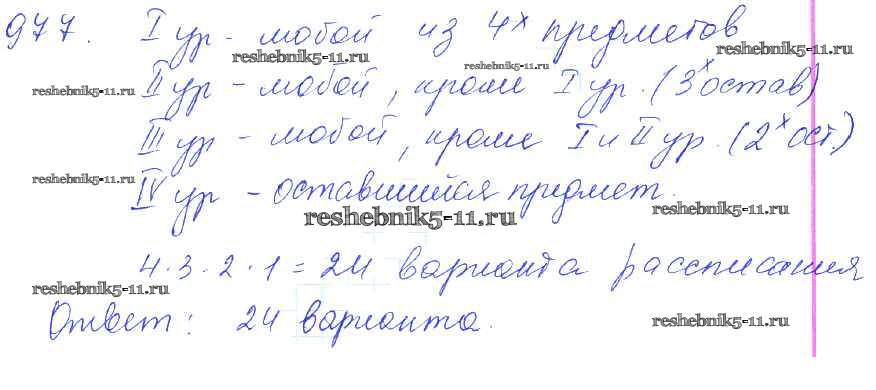 977. I ур - любой из 4х предметов
reshebnik5-11.ru reshebnik5-11.ru
reshebnik5-11.ru II ур - любой, кроме I ур. (3х остав)
III ур - любой, кроме I и II ур. (2х ост.)
reshebnik5-11.ru IV ур - оставшийся предмет.
reshebnik5-11.ru reshebnik5-11.ru
4·3·2·1=24 варианта рассписания
reshebnik5-11.ru
Ответ: 24 варианта. reshebnik5-11.ru